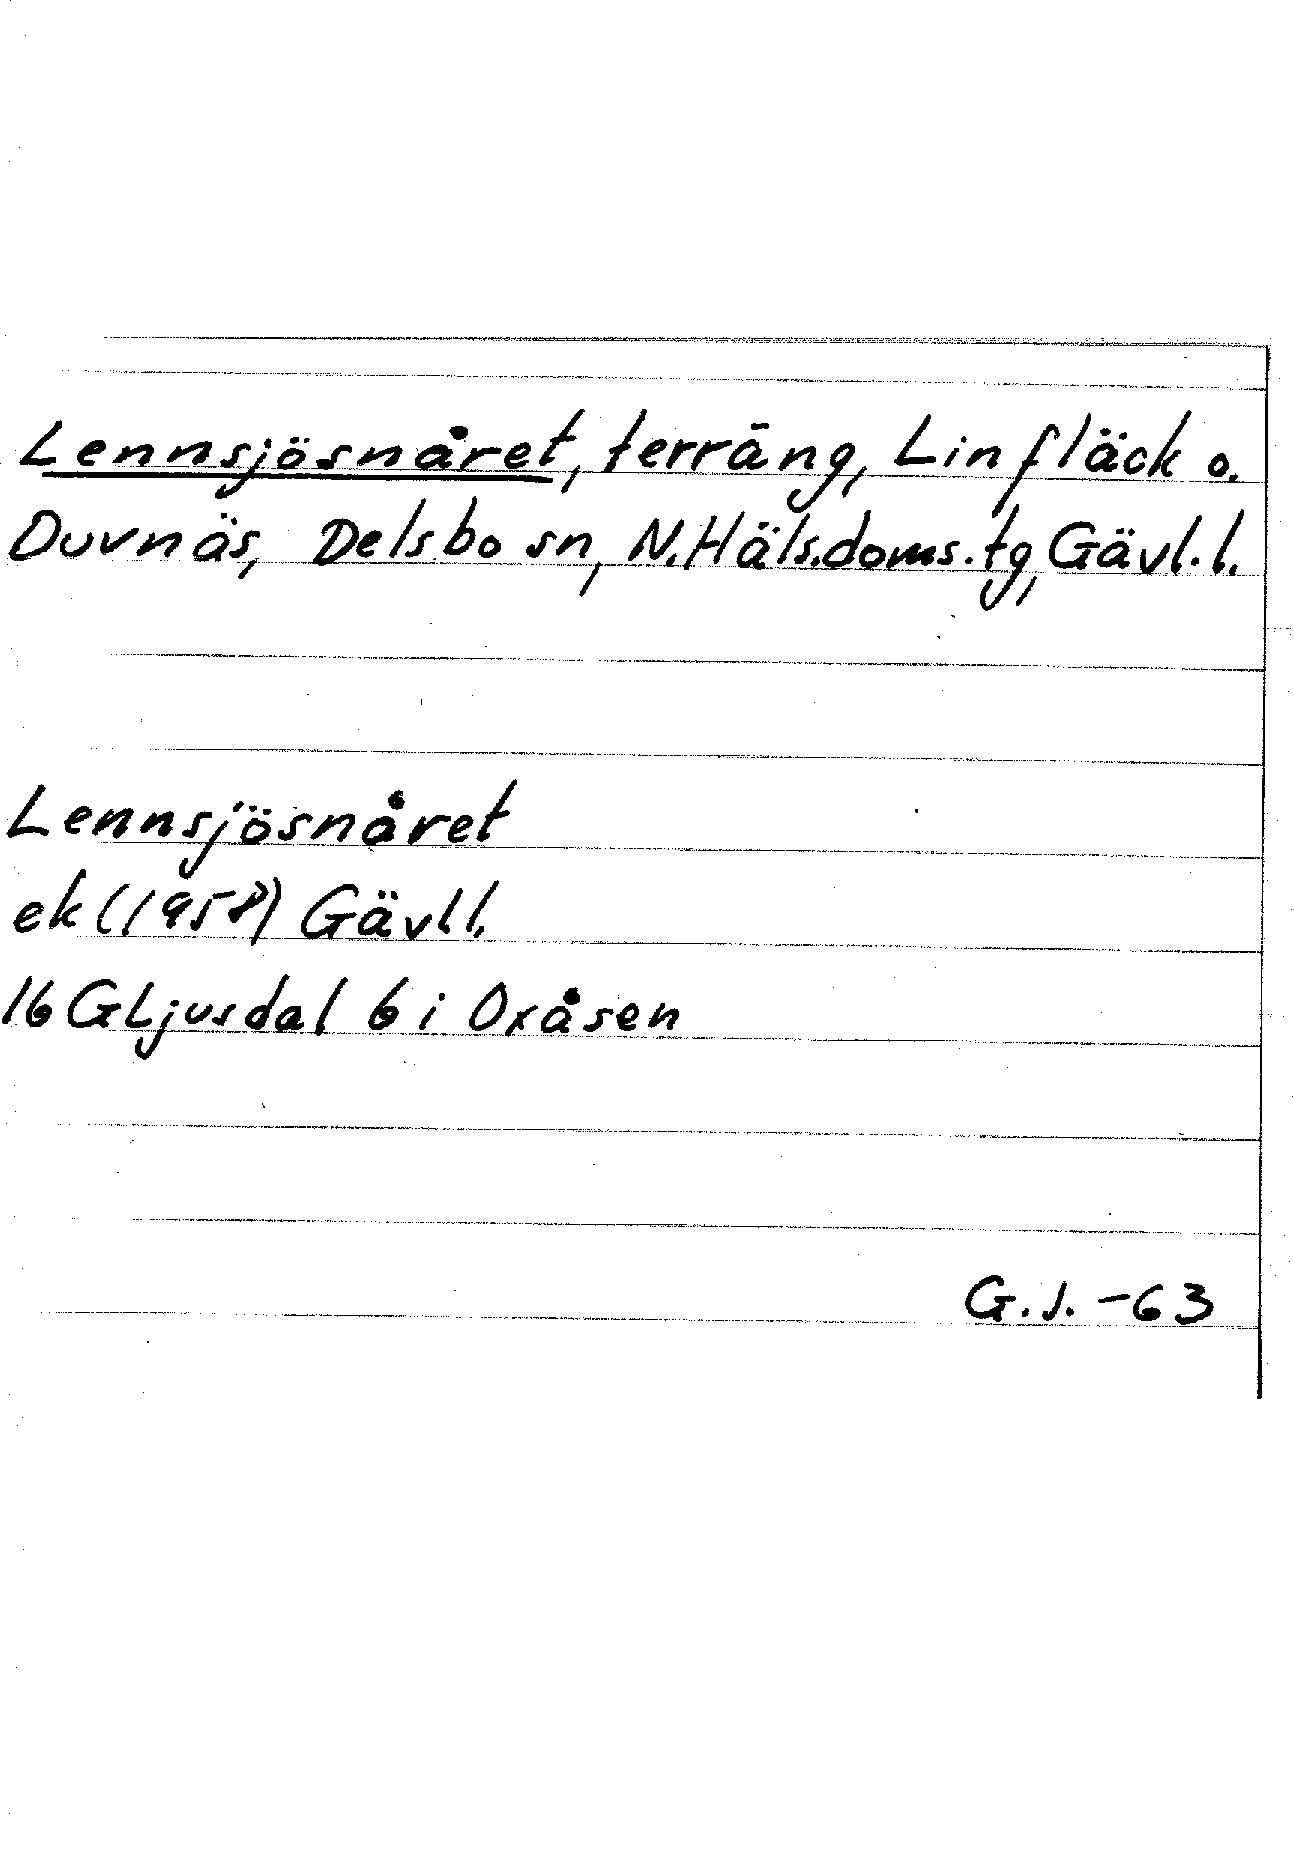 Lennsjösnåret, terräng, Linfläck o.
Duvnäs, Delsbo sn, N.Häls.doms.tg, Gävl.l.
Lennsjösnåret
ek (1958) Gävl l.
16 G Ljusdal 6 i Oxåsen
G.J. -63